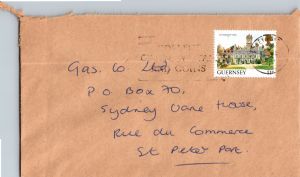 GUERNSEY
Gas. Co. Ltd,
P.O. Box 70,
Sydney Vane House,
Rue du Commerce
St Peter Port.